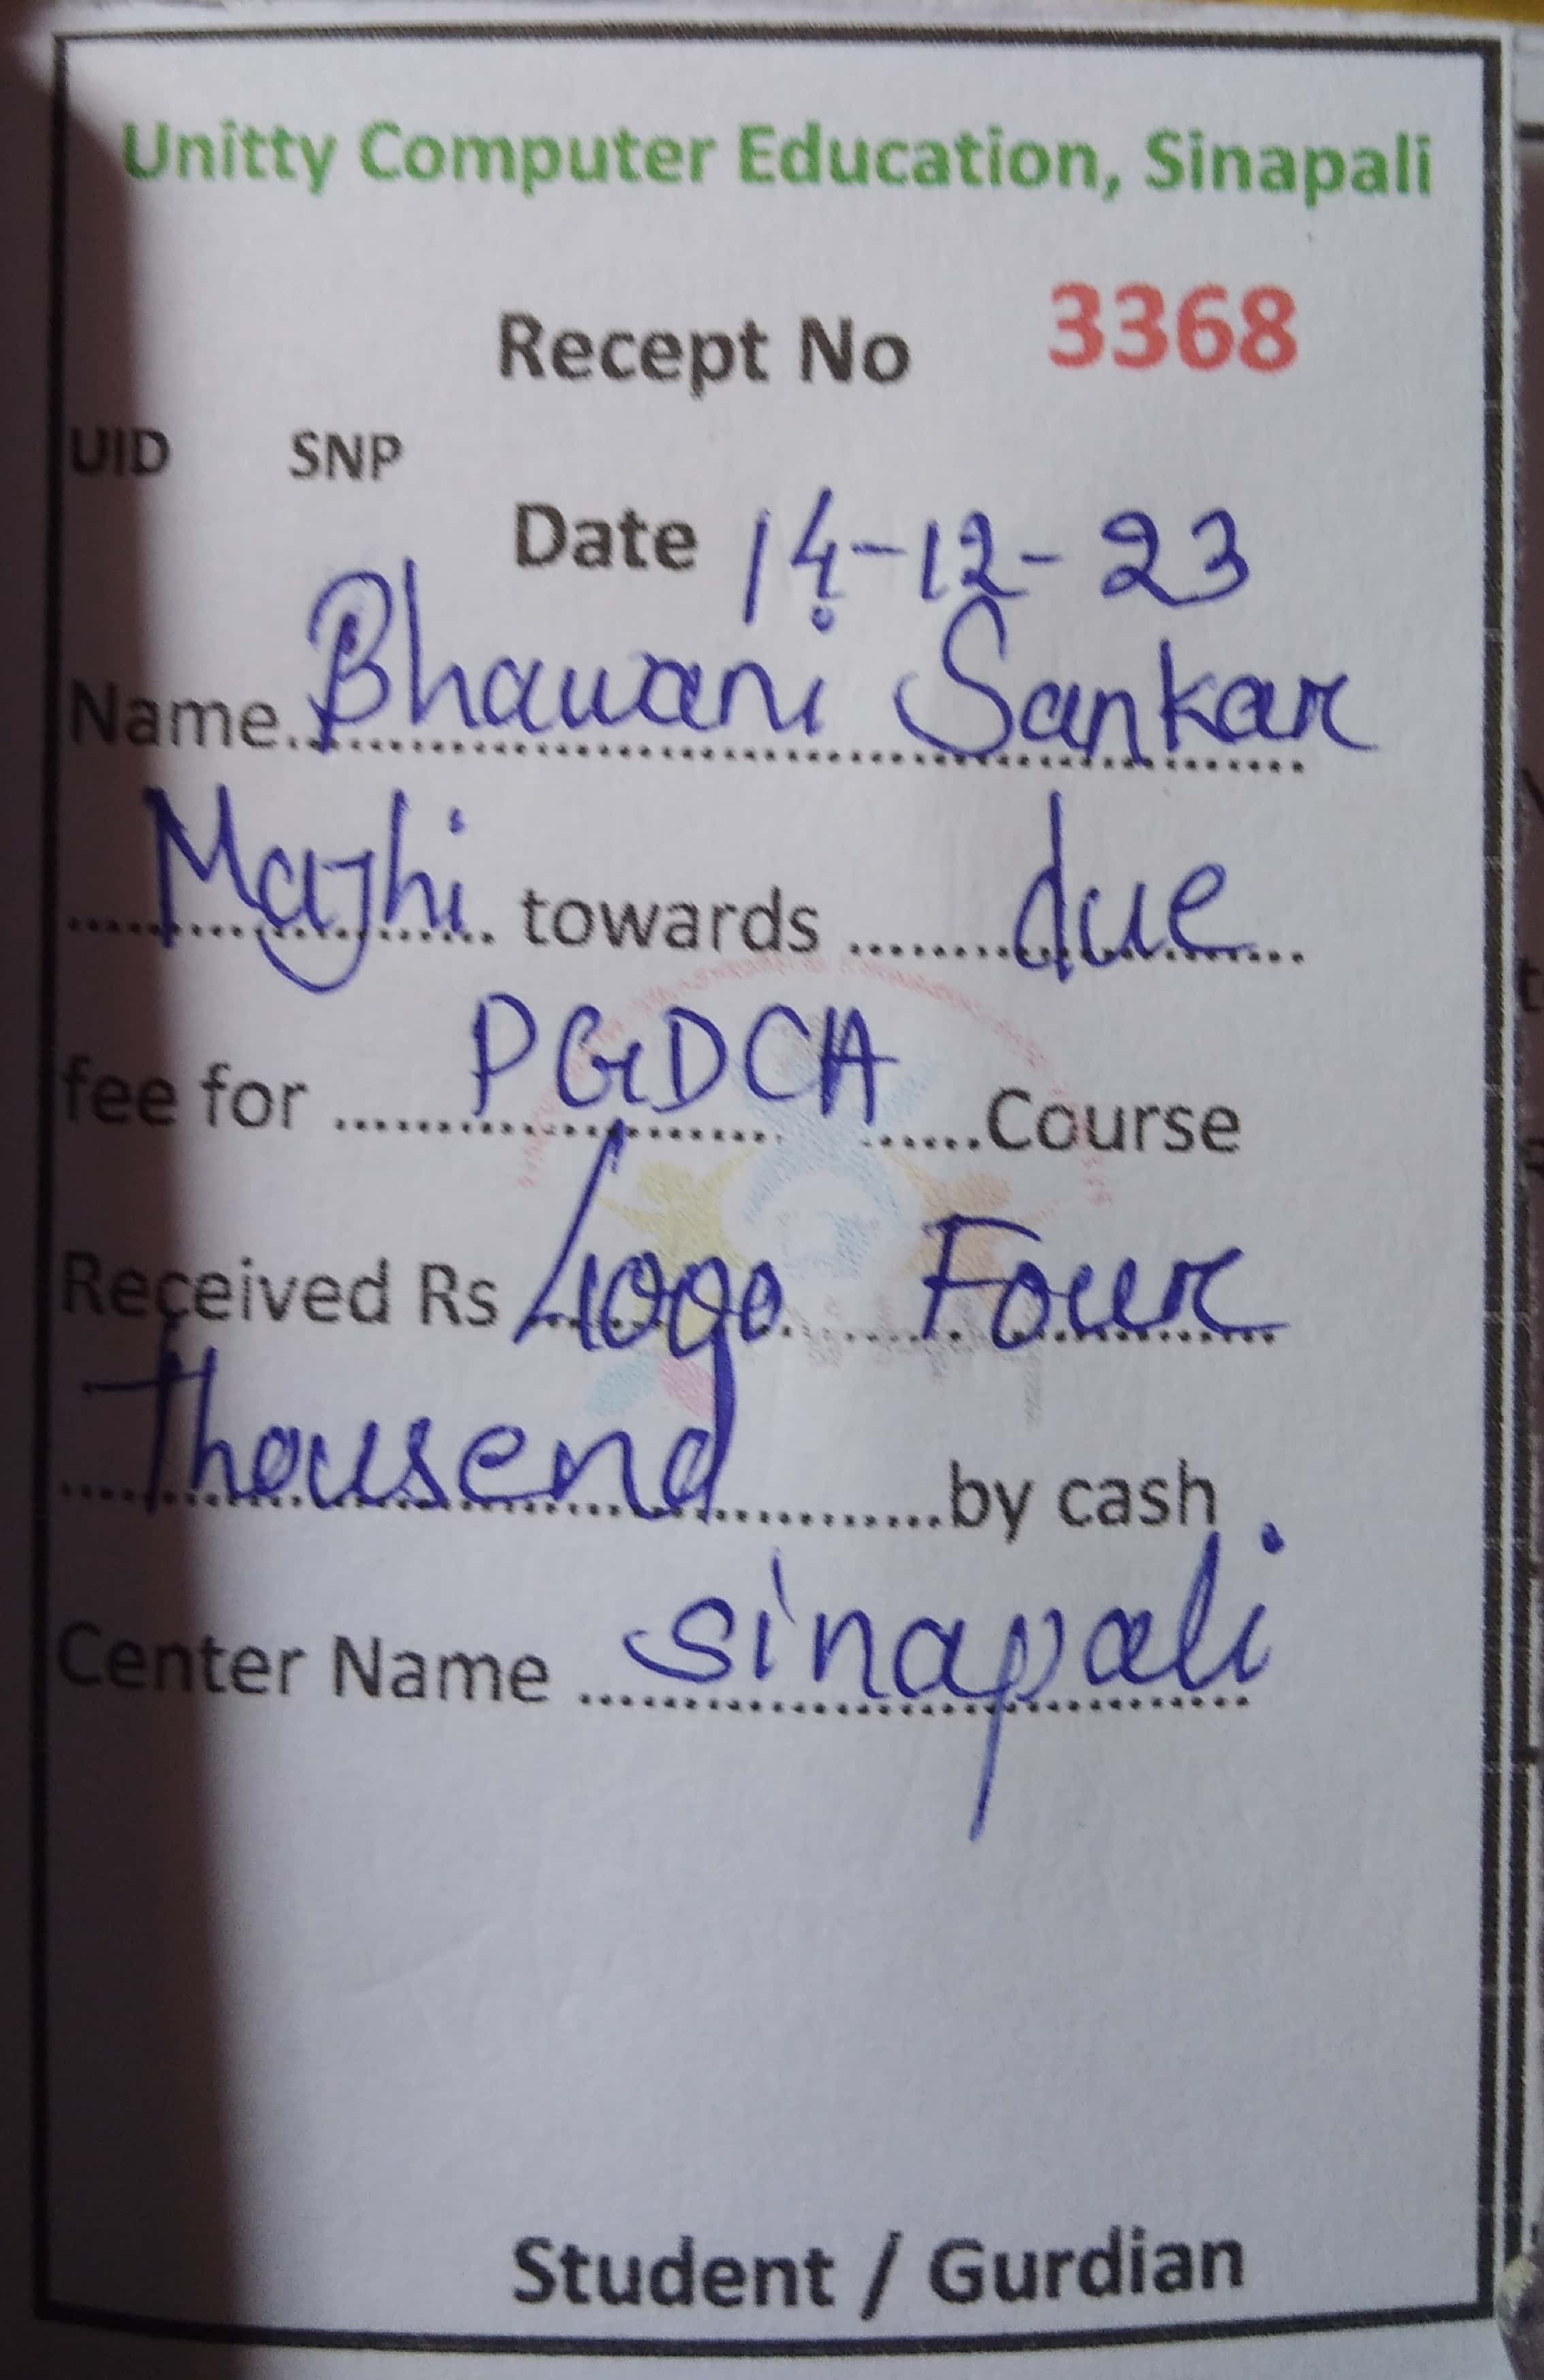 Unitty Computer Education, Sinapali
Recept No 3368
UID SNP
Date 14-12-23
Name Bhawani Sankar
Majhi towards due
fee for PGDCA Course
Received Rs 4000 Four
Thousend by cash
Center Name Sinapali
Student / Gurdian